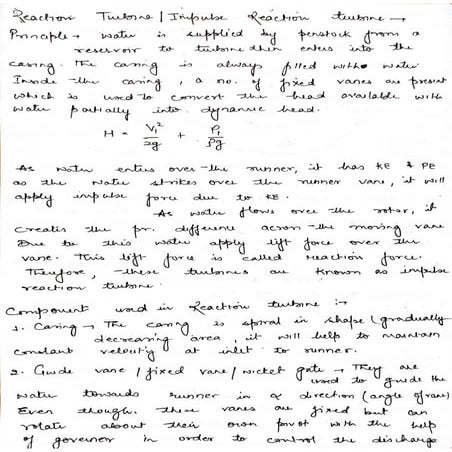 Reaction Turbine / Impulse Reaction turbine →
Principle → Water is supplied by penstock from a
reservoir to turbine then enters into the
casing. The casing is always filled with water
Inside the casing, a no. of fixed vanes are present
which is used to convert the head available with
water partially into dynamic head.
H = V₁²/2g + P₁/ρg
As water enters over the runner, it has KE & PE
as the water strikes over the runner vane, it will
apply impulse force due to KE.
As water flows over the rotor, it
creates the pr. difference across the moving vane
Due to this water apply lift force over the
vane. This lift force is called reaction force.
Therefore, these turbines are known as impulse
reaction turbine.
Component used in Reaction turbine :→
1. Casing → The casing is spiral in shape (gradually
decreasing area, it will help to maintain
constant velocity at inlet to runner.
2. Guide vane / fixed vane / wicket gate → They are
used to guide the
water towards runner in α direction (angle of vane)
Even though these vanes are fixed but can
rotate about their own pivot with the help
of governer in order to control the discharge